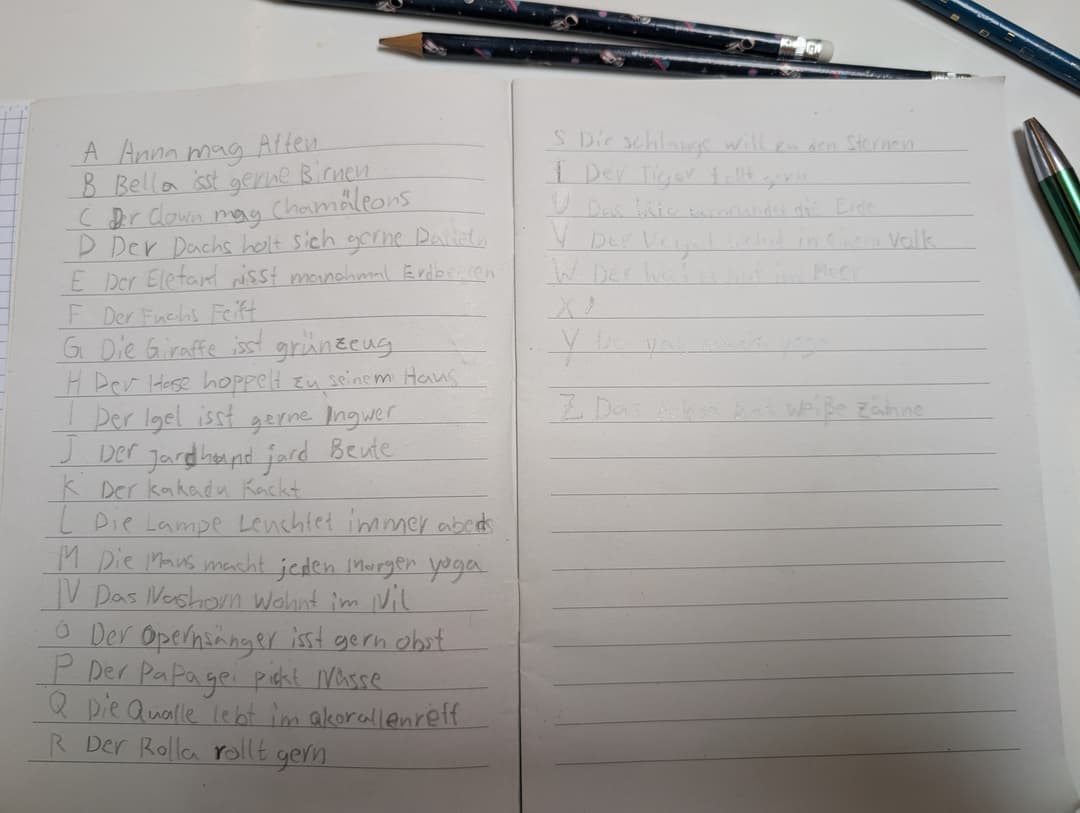 A Anna mag Affen
B Bella isst gerne Birnen
C Dr Clown mag Chamäleons
D Der Dachs holt sich gerne Datteln
E Der Elefant nisst manchmal Erdbeeren
F Der Fuchs Feift
G Die Giraffe isst grünzeug
H Der Hase hoppelt zu seinem Haus
I Der Igel isst gerne Ingwer
J Der jardhund jard Beute
K Der Kakadu Kackt
L Die Lampe Leuchtet immer abends
M Die Maus macht jeden Morgen yoga
N Das Nashorn Wohnt im Nil
O Der Opernsänger isst gern obst
P Der PaPagei pickt Nüsse
Q Die Qualle lebt im qkorallenreff
R Der Rolla rollt gern
S Die schlange will zu den Sternen
T Der Tiger gern
U Das die Erde
V Der in einem Volk
W Der im Meer
X
Y
Z Das hat weiße zähne